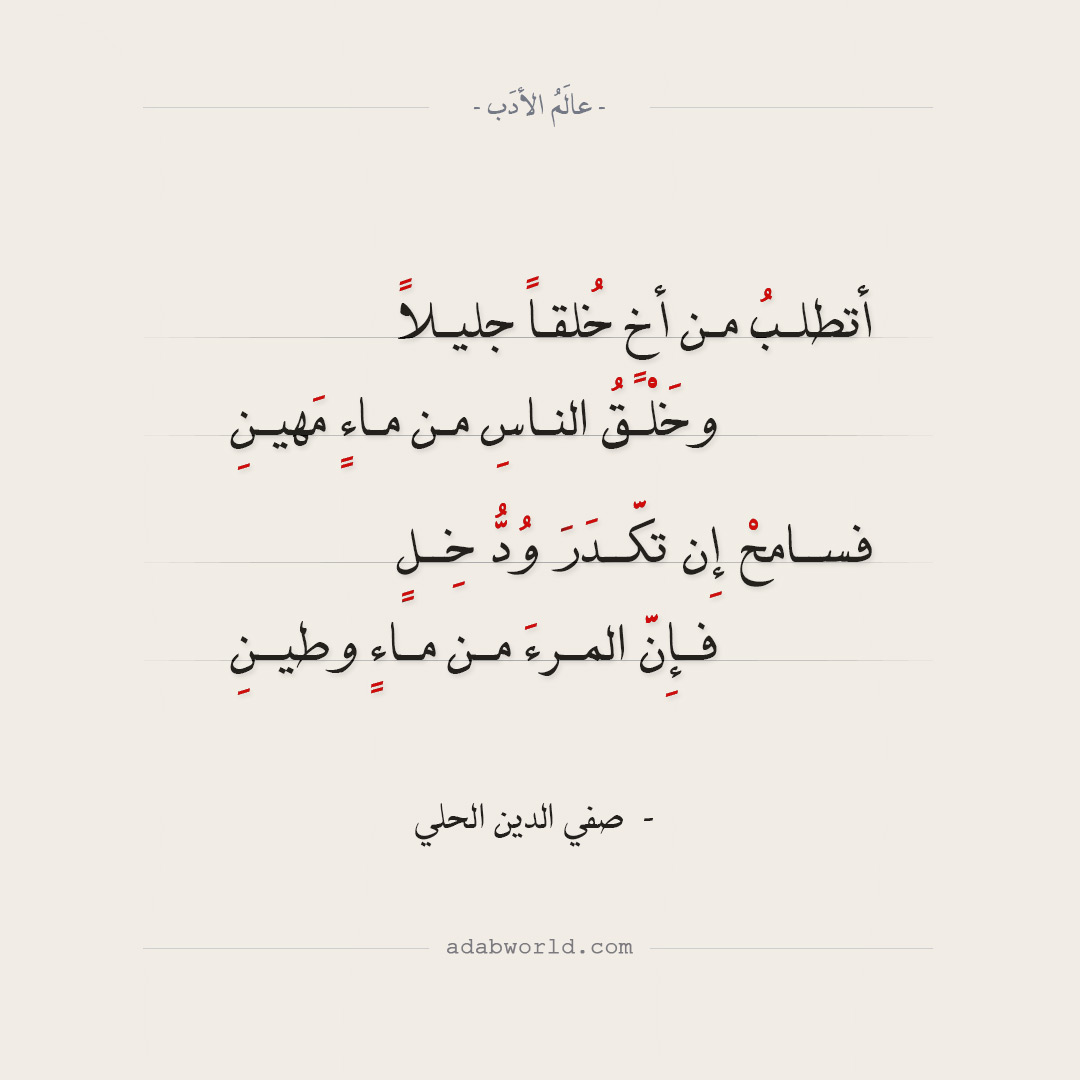 - عالَمُ الأدَب -
أتطلبُ من أخٍ خُلقاً جليلاً
وخَلْقُ الناسِ من ماءٍ مَهينِ
فسامحْ إِن تكّدَرَ وُدُّ خِلٍ
فإِنّ المرءَ من ماءٍ وطينِ
- صفي الدين الحلي
adabworld.com